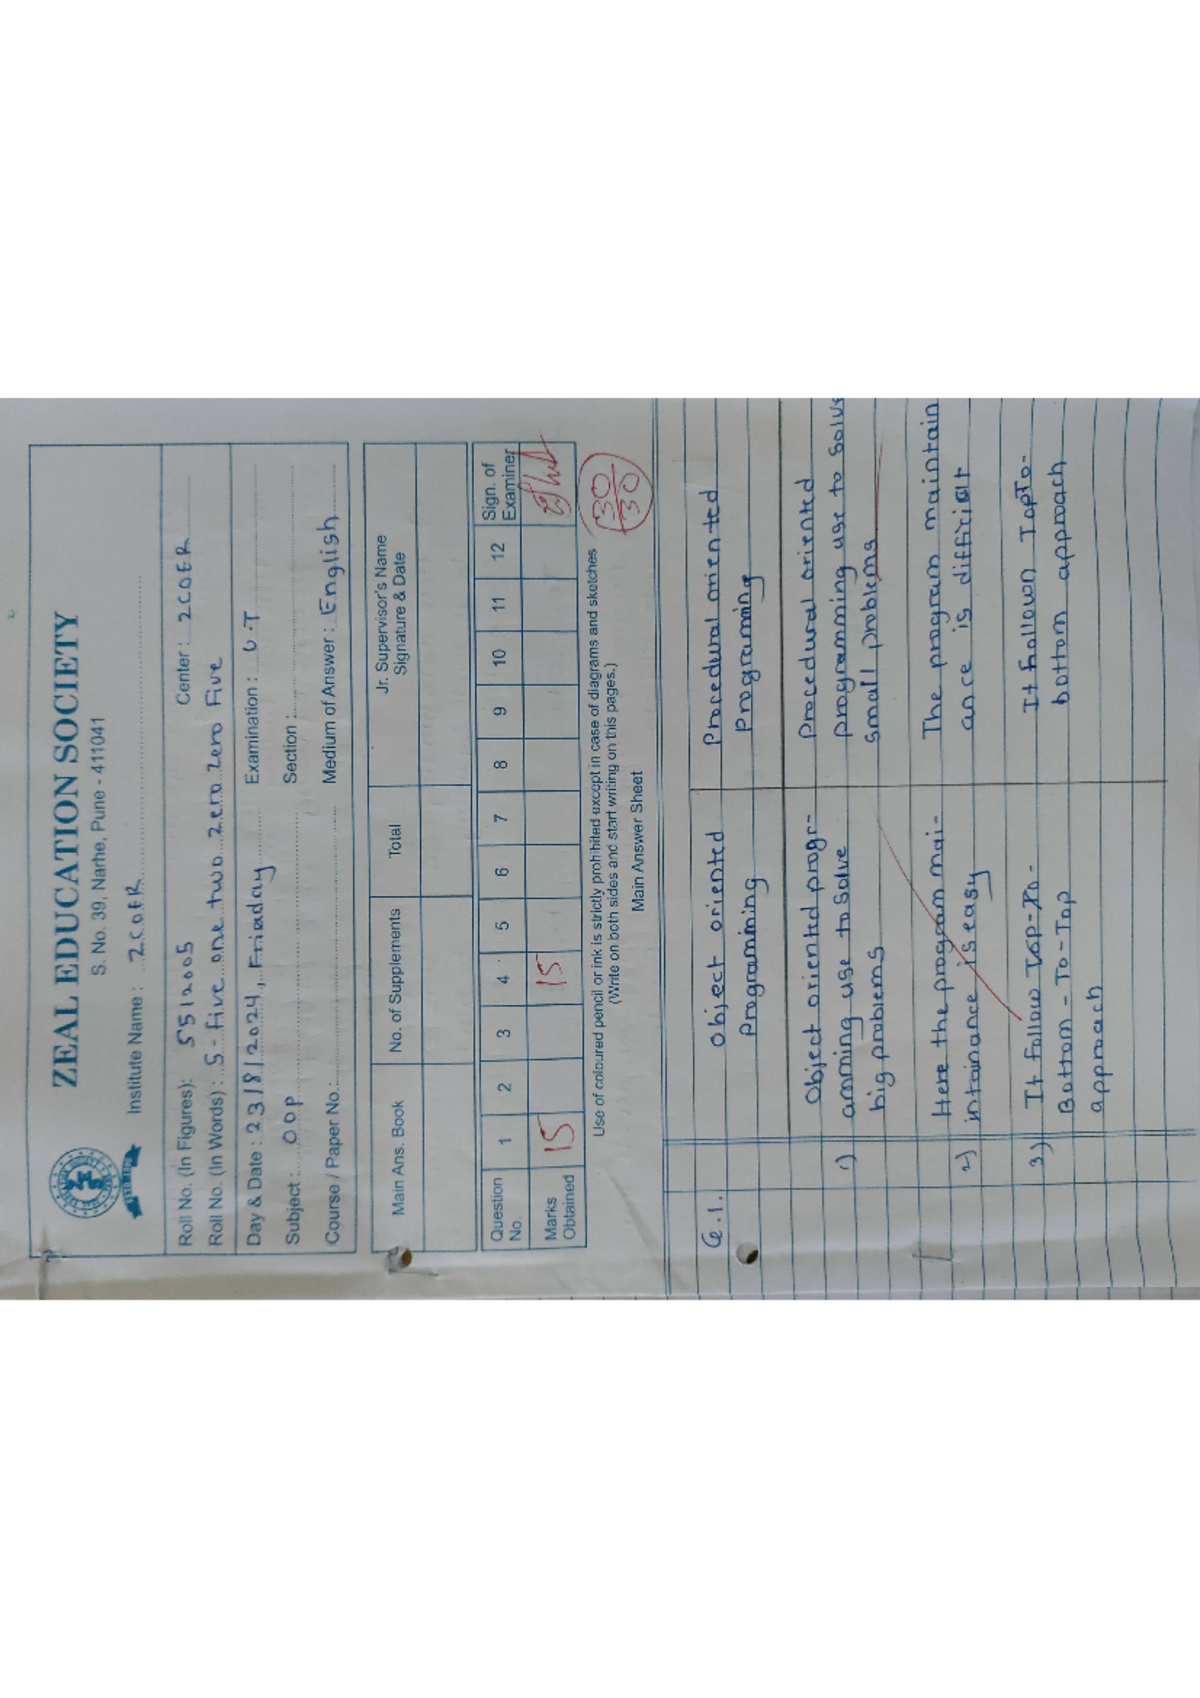 ZEAL EDUCATION SOCIETY
S. No. 39, Narhe, Pune - 411041
Institute Name : ZCOER
Roll No. (In Figures): SS12005 Center : ZCOER
Roll No. (In Words) : S-Five one two zero zero Five
Day & Date : 23/8/2024, Friaday Examination : U.T
Subject : OOP Section :
Course / Paper No.: Medium of Answer : English
Main Ans. Book No. of Supplements Total Jr. Supervisor's Name
Signature & Date
Question No. 1 2 3 4 5 6 7 8 9 10 11 12 Sign. of Examiner
Marks Obtained 15 15
30/30
Use of coloured pencil or ink is strictly prohibited except in case of diagrams and sketches
(Write on both sides and start writing on this pages.)
Main Answer Sheet
Q.1. Object oriented Procedural oriented
Programming Programming
Object oriented progr- Procedural oriented
1) amming use to solve programming use to solve
big problems small problems
Here the program mai- The program maintain
2) intainance is easy ance is difficult
3) It follow Top-To- It follown TopTo-
Bottom-To-Top bottom approach
approach